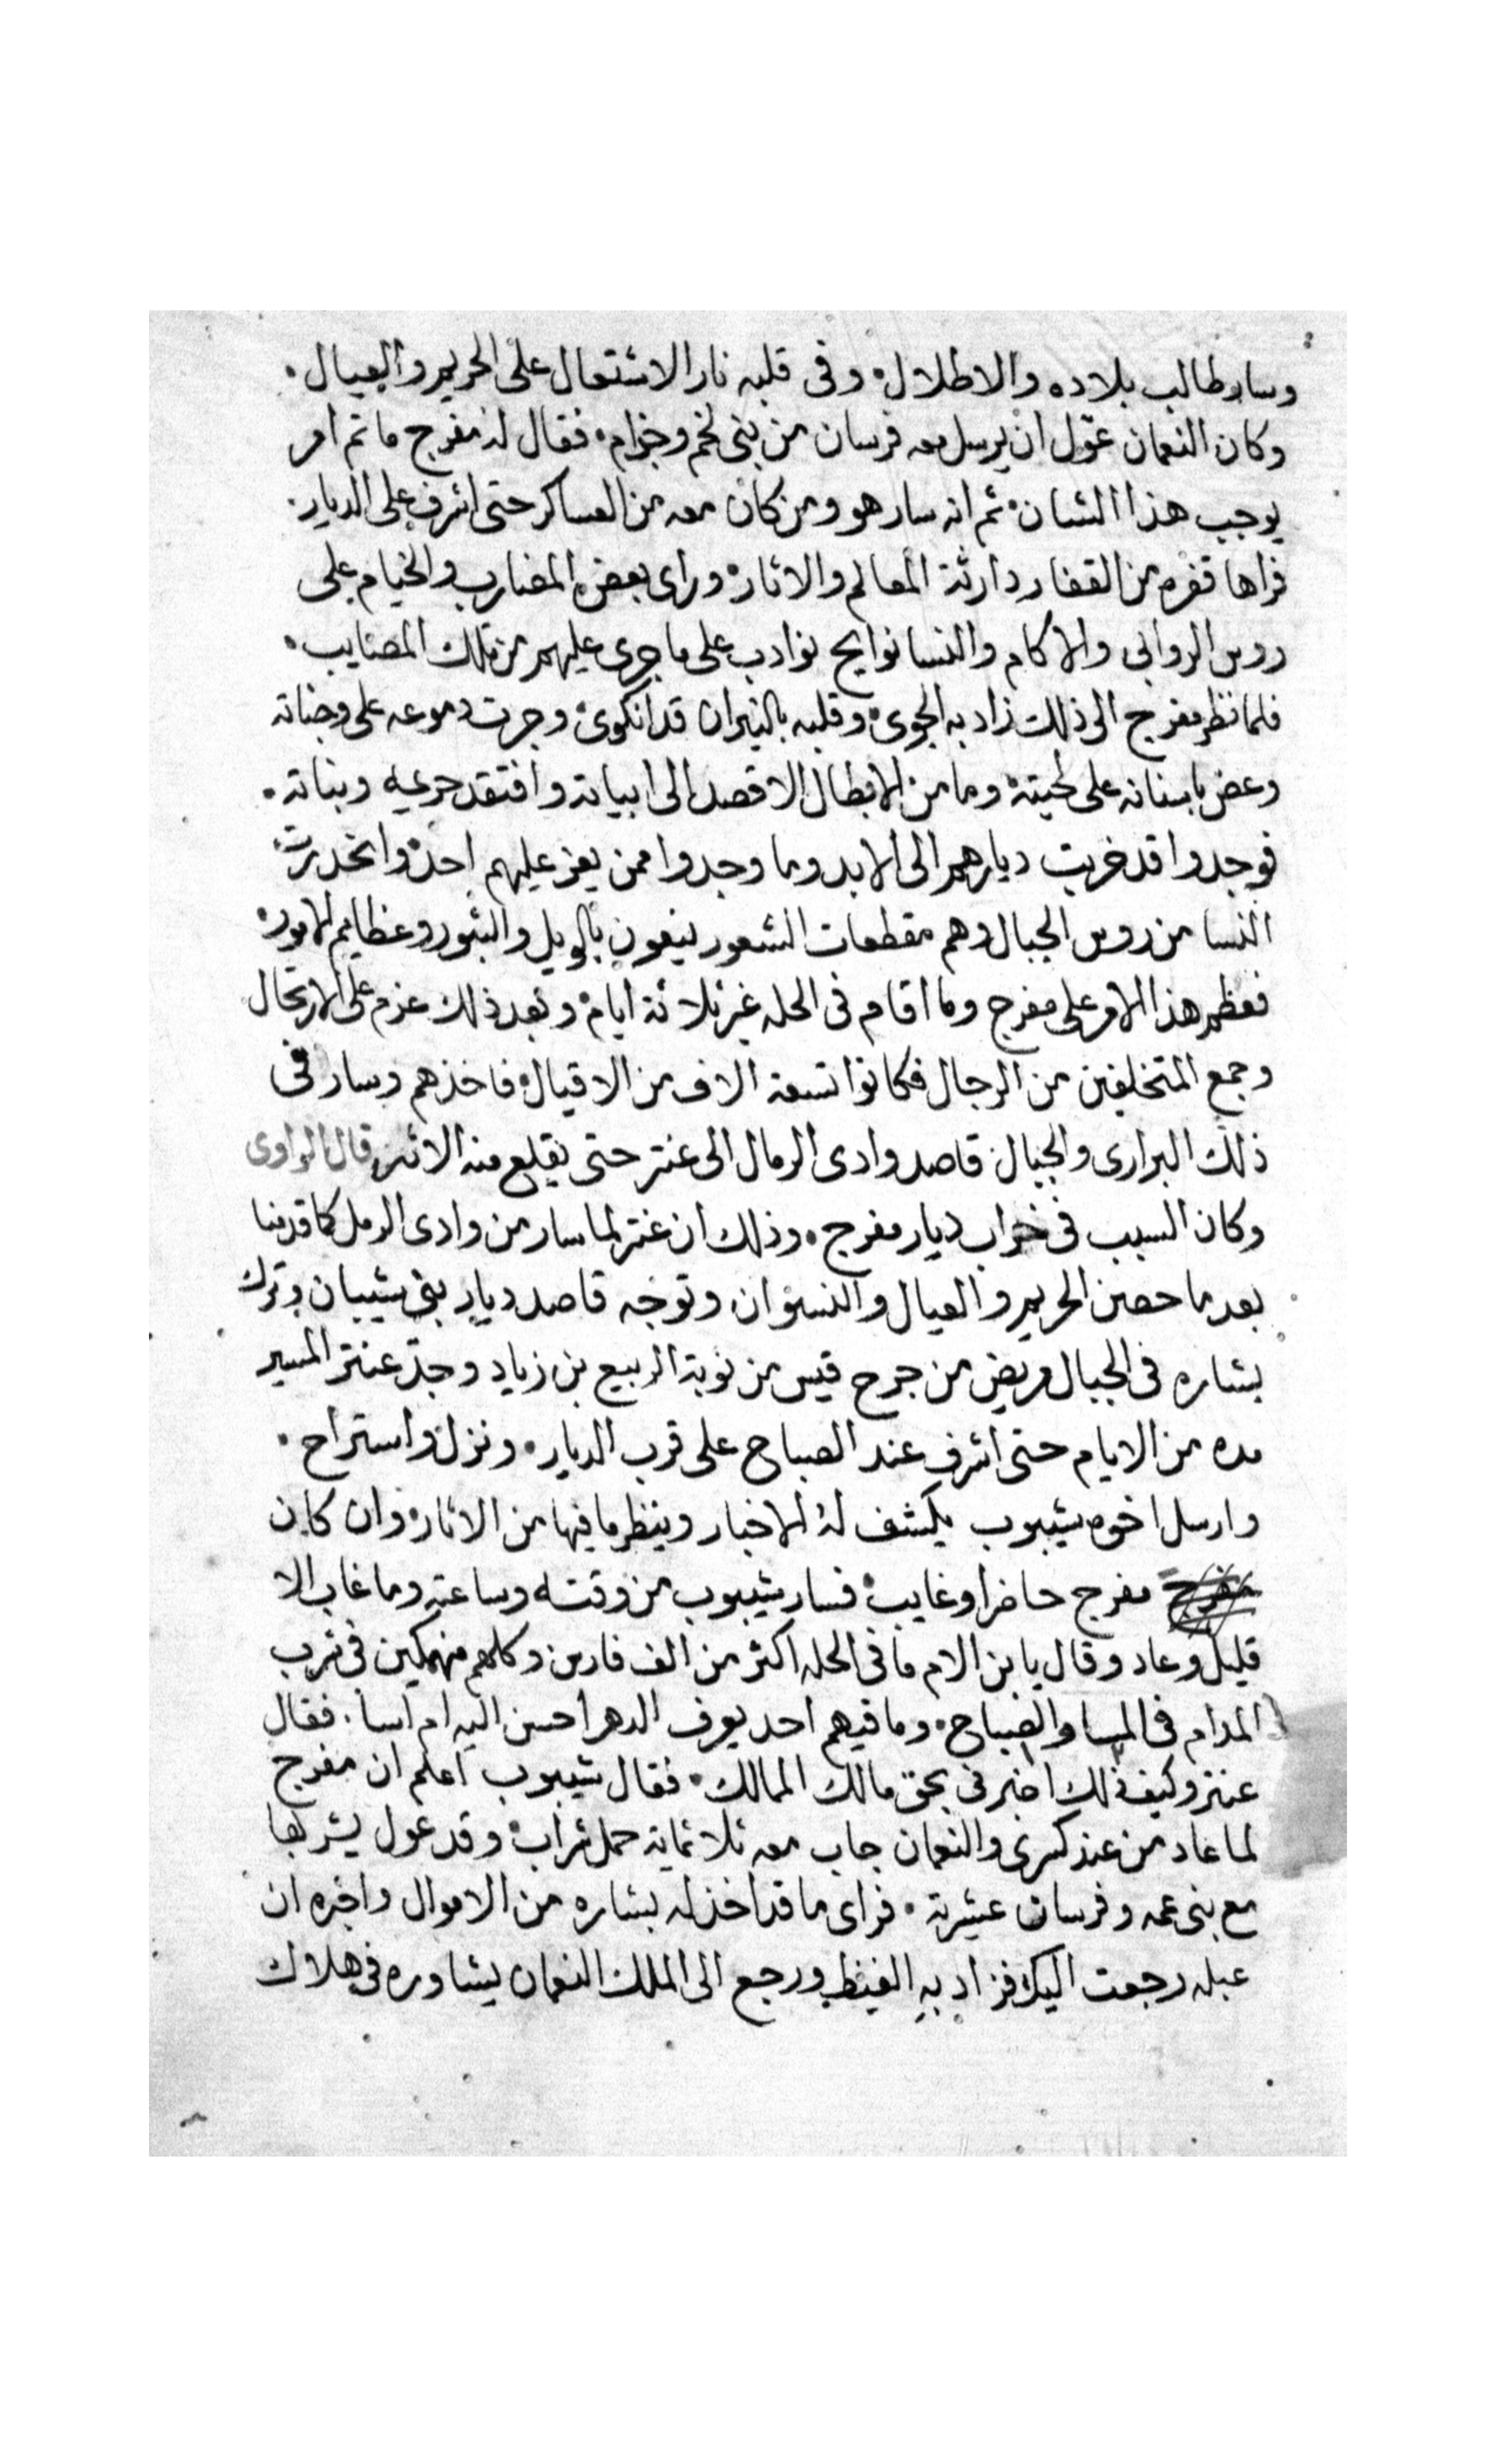 وسار طالب بلاده والاطلال، وفى قلبه نار الاشتعال على الحريم والعيال.
وكان النعمان عوّل ان يرسل معه فرسان من بنى لخم وجزام، فقال له مفرج ما تم امر
يوجب هذا الشان، ثم انه سار هو ومن كان معه من العساكر حتى اشرف على الديار.
فراها قفره من القفار دارثة المعالم والاثار، وراى بعض المضارب والخيام على
روس الروابى والاكام والنسا نوايح نوادب على ما جرى عليهم من تلك المصايب.
فلما نظر مفرج الى ذلك زاد به الجوى، وقلبه بالنيران قد انكوى، وجرت دموعه على وجناته
وعض باسنانه على لحيته، وما من الابطال الا قصد الى ابياته وافتقد حريمه وبناته.
فوجدوا قد خربت ديارهم الى الابد وما وجدوا ممن يعز عليهم احد، وانحدرت
النسا من روس الجبال وهم مقطعات الشعور ينعون بالويل والثبور وعظايم الامور،
فعظم هذا الامر على مفرج وما اقام فى الحله غير ثلاثة ايام، وبعد ذلك عزم على الارتحال
وجمع المتخلفين من الرجال فكانوا تسعة الاف من الاقيال، فاخذهم وسار فى
ذلك البرارى والجبال قاصد وادى الرمال الى عنتر حتى يقلع منه الاثر، قال الراوى
وكان السبب فى خراب ديار مفرج. وذلك ان عنتر لما سار من وادى الرمل كما قدمنا
بعد ما حصن الحريم والعيال والنسوان وتوجه قاصد ديار بنى شيبان وترك
بشاره فى الجبال مريض من جرح قيس من نوبة الربيع بن زياد وجدّ عنتر المسير
مده من الايام حتى اشرف عند الصباح على قرب الديار. ونزل واستراح.
وارسل اخوه شيبوب يكشف له الاخبار وينظر ما فيها من الاثار، وان كان
مفرج حاضرا وغايب، فسار شيبوب من وقته وساعته وما غاب الا
قليل وعاد وقال يا بن الام ما فى الحله اكثر من الف فارس وكلهم منهمكين فى شرب
المدام فى المسا والصباح، وما فيهم احد يعرف الدهر احسن اليه ام اسا. فقال
عنتر وكيف ذلك اخبرنى بحق مالك الممالك. فقال شيبوب اعلم ان مفرج
لما عاد من عند كسرى والنعمان جاب معه ثلاثماية حمل شراب، وقد عول يشربها
مع بنى عمه وفرسان عشيرته. فراى ما قد اخذ له بشاره من الاموال واخبره ان
عبله رجعت اليك فزاد به الغيظ ورجع الى الملك النعمان يشاوره فى هلاك